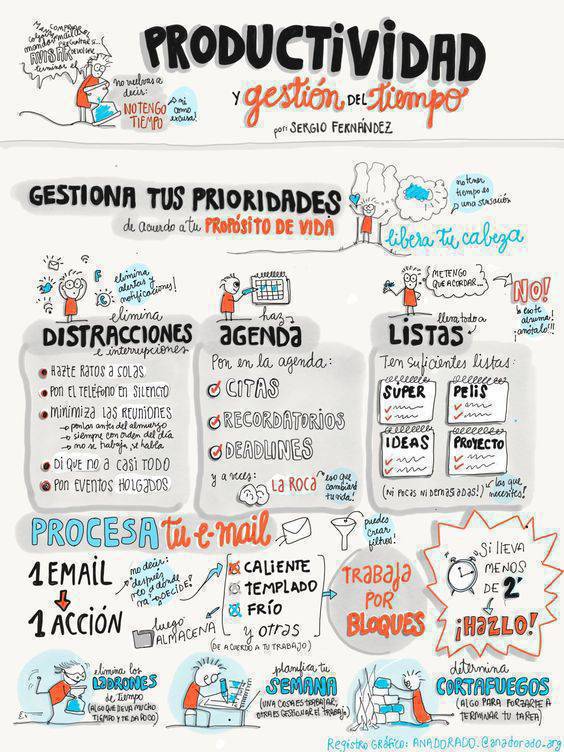 COMPRAR
AVISAR
PRODUCTIVIDAD
y gestión DEL tiempo
por: SERGIO FERNÁNDEZ
no vuelvas a
decir:
NO TENGO
TIEMPO
o así
como
excusa!
GESTIONA TUS PRIORIDADES
de acuerdo a tu PROPÓSITO DE VIDA
no tener
tiempo es
una sensación
libera tu cabeza
elimina
alertas y
notificaciones!
elimina
DISTRACCIONES
e interrupciones
HAZTE RATOS A SOLAS
PON EL TELÉFONO EN SILENCIO
MINIMIZA LAS REUNIONES
→ ponlas antes del almuerzo
→ siempre con orden del día
→ no se trabaja, se habla
DI QUE NO A CASI TODO
PON EVENTOS HOLGADOS
haz
AGENDA
Pon en la agenda:
CITAS
RECORDATORIOS
DEADLINES
y a veces:
LA ROCA
eso que
cambiará
tu vida!
ME TENGO
QUE ACORDAR...
NO!
eso te
abruma!
¡anótalo!!!
lleva todo a
LISTAS
Ten suficientes listas:
SUPER
PELIS
IDEAS
PROYECTO
(ni pocas ni demasiadas!)
las que
necesites!
PROCESA tu e-mail
puedes
crear
filtros!
1 EMAIL
1 ACCIÓN
no decir:
"después
veo a dónde
va" ¡DECIDE!
luego
ALMACENA
CALIENTE
TEMPLADO
FRÍO
y otras
(DE ACUERDO A TU TRABAJO)
TRABAJA
POR
BLOQUES
SI LLEVA
MENOS
DE 2'
¡HAZLO!
elimina los
LADRONES
de tiempo
(ALGO QUE LLEVA MUCHO
TIEMPO Y TE DA POCO)
planifica tu
SEMANA
(UNA COSA ES TRABAJAR,
OTRA ES GESTIONAR EL TRABAJO)
determina
CORTAFUEGOS
(ALGO PARA FORZARTE A
TERMINAR TU TAREA)
Registro GRÁFICO: ANADORADO. @anadorado.org